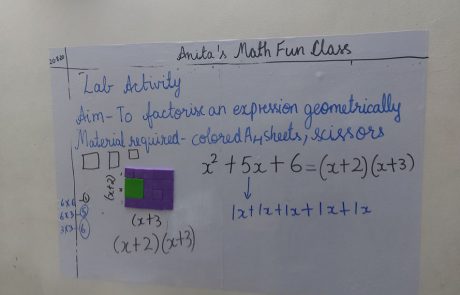 Anita's Math Fun Class
Lab Activity
Aim- To factorise an expression geometrically
Material required- colored A4 sheets, scissors
x² + 5x + 6 = (x+2)(x+3)
1x+1x+1x+1x+1x
(x+2)
(x+3
(x+2)(x+3)